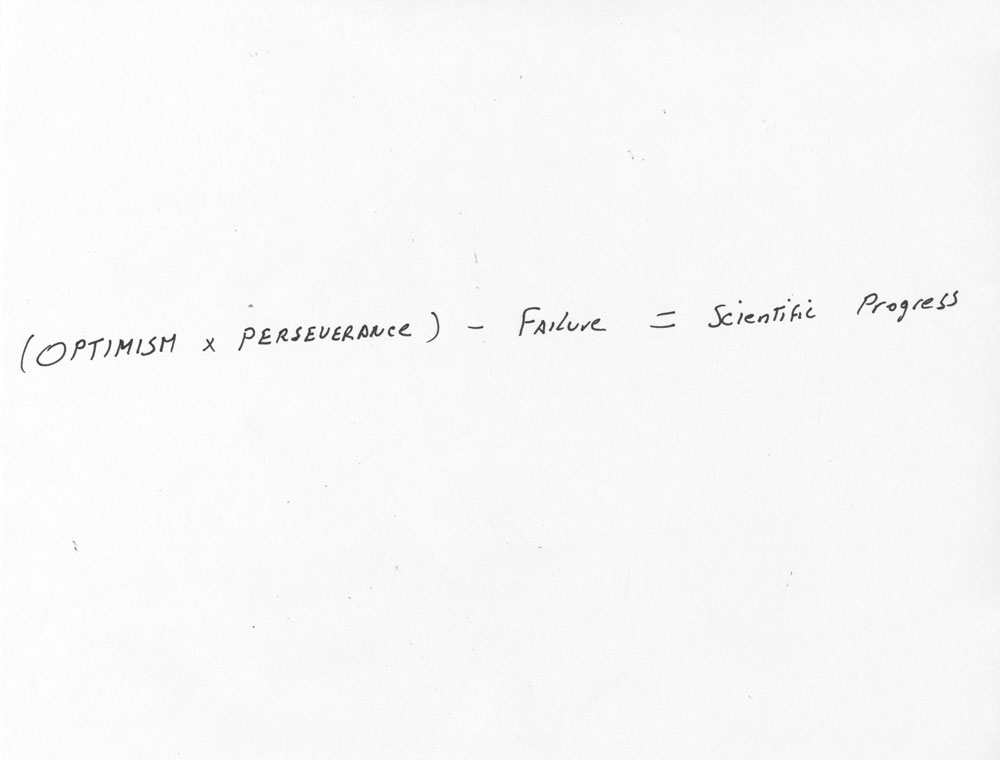 (OPTIMISM x PERSEVERANCE) - FAILURE = Scientific Progress